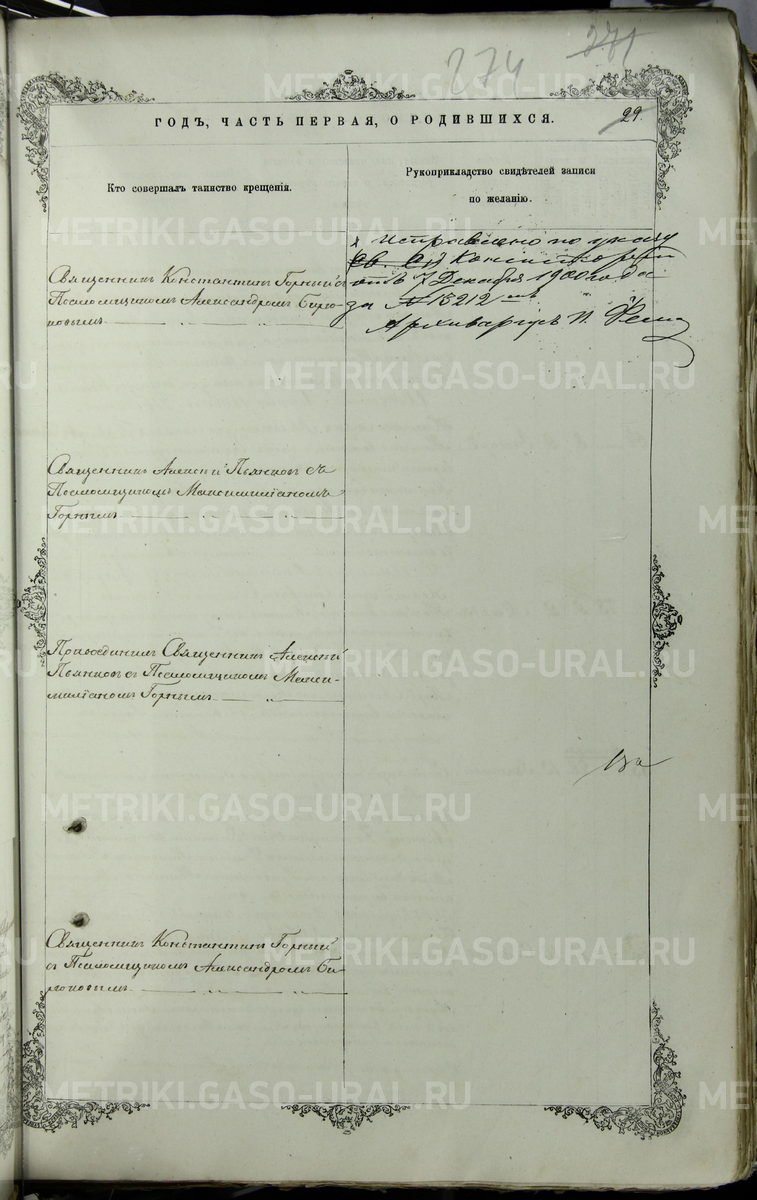 274 271
29.
ГОДЪ, ЧАСТЬ ПЕРВАЯ, О РОДИВШИХСЯ.
Кто совершалъ таинство крещенія.
Рукоприкладство свидѣтелей записи
по желанію.
Священникъ Константинъ Горный съ
Псаломщикомъ Александромъ Бирю-
ковымъ
Исправлено по указу
Консисторіи
отъ 7 Декабря 1900 года
за № 13212
Архиваріусъ
Священникъ Алексій Пьянковъ съ
Псаломщикомъ Максимиліаномъ
Горнымъ
Присоединилъ Священникъ Алексій
Пьянковъ съ Псаломщикомъ Макси-
миліаномъ Горнымъ
Священникъ Константинъ Горный
съ Псаломщикомъ Александромъ Би-
рюковымъ
METRIKI.GASO-URAL.RU